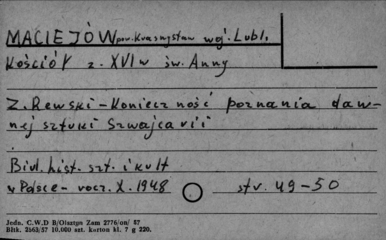 MACIEJÓW pow. Krasnystaw woj. Lubl.
Kościół z. XVI w św. Anny
Z. Rewski - Konieczność poznania daw-
nej sztuki Szwajcarii
Biul. hist. szt. i kult
w Polsce - rocz. X. 1948 str. 49-50
Jedn. C.W.D B/Olsztyn Zam 2776/on/ 57
Bltk. 2563/57 10.000 szt. karton kl. 7 g 220.